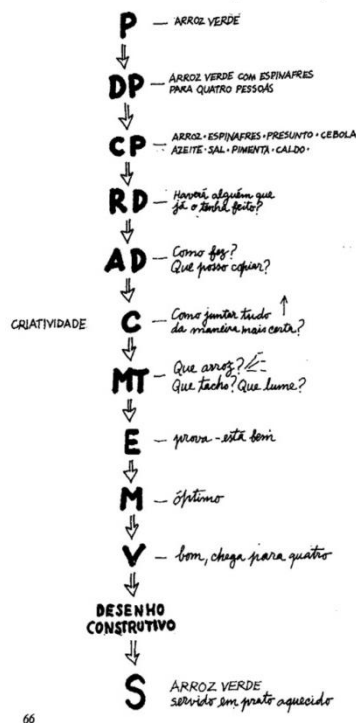 P — ARROZ VERDE
DP — ARROZ VERDE COM ESPINAFRES
PARA QUATRO PESSOAS
CP — ARROZ · ESPINAFRES · PRESUNTO · CEBOLA
AZEITE · SAL · PIMENTA · CALDO ·
RD — Haverá alguém que
já o tenha feito?
AD — Como fez?
Que posso copiar?
CRIATIVIDADE C — Como juntar tudo
da maneira mais certa?
MT — Que arroz?
Que tacho? Que lume?
E — prova - está bem
M — óptimo
V — bom, chega para quatro
DESENHO
CONSTRUTIVO
S ARROZ VERDE
servido em prato aquecido
66